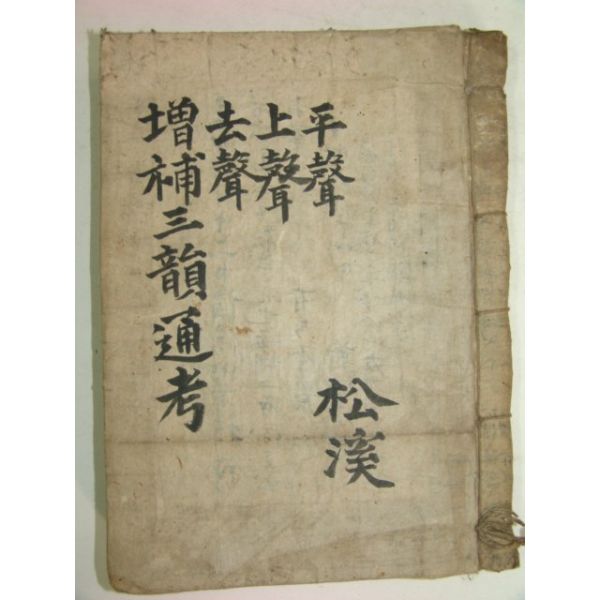 平聲
上聲
去聲
增補三韻通考
松溪